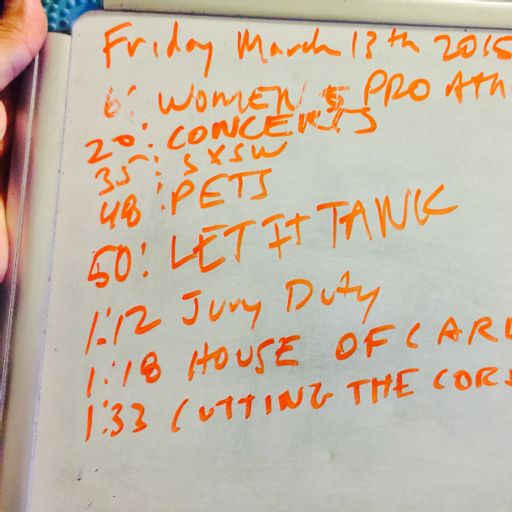 Friday March 13th 2015
6: WOMEN & PRO ATH
20: CONCERTS
35: SXSW
48: PETS
50: LET It TANK
1:12 Jury Duty
1:18 HOUSE OF CARD
1:33 CUTTING THE CORD